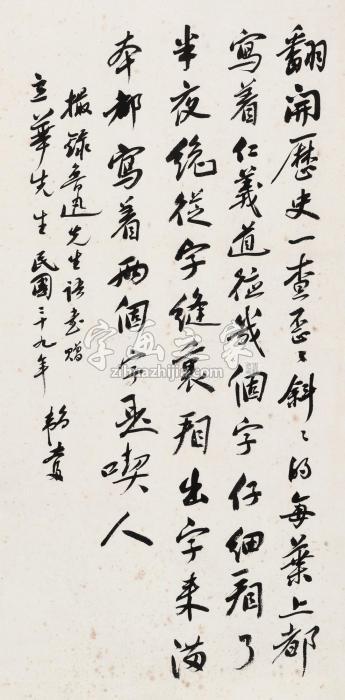 翻開歷史一查歪〻斜〻的每葉上都
寫着仁義道德幾個字仔細看了
半夜纔從字縫裏看出字來滿
本都寫着兩個字是喫人
撮錄魯迅先生語書贈
立華先生 民國 十九年 韜奮
字画之家
zihuazhijia.com